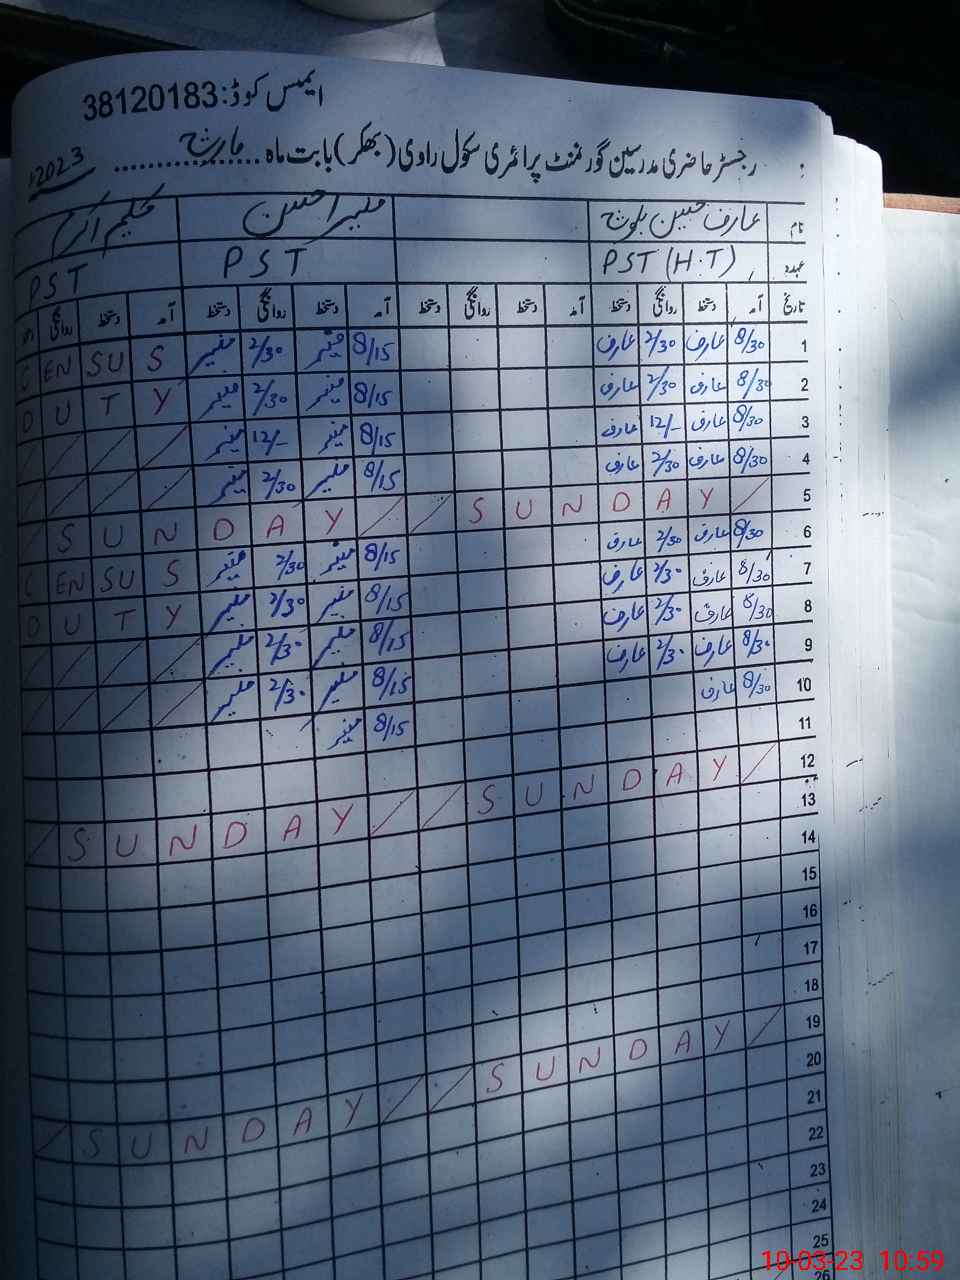 ایمس کوڈ: 38120183
رجسٹر حاضری مدرسین گورنمنٹ پرائمری سکول راوی (بھکر) بابت ماہ ..... مارچ ..... 2023ء
نام عارف حسین بلوچ
عہدہ PST (H.T) PST PST
تاریخ آمد دستخط روانگی دستخط آمد دستخط روانگی دستخط آمد دستخط روانگی دستخط آمد دستخط روانگی
1 8/30 عارف 2/30 عارف 8/15 منیر 2/30 منیر C EN SU S
2 8/30 عارف 2/30 عارف 8/15 منیر 2/30 منیر D U T Y
3 8/30 عارف 12/- عارف 8/15 منیر 12/- منیر
4 8/30 عارف 2/30 عارف 8/15 منیر 2/30 منیر
5 S U N D A Y S U N D A Y
6 8/30 عارف 2/30 عارف 8/15 منیر 2/30 منیر C EN SU S
7 8/30 عارف 2/30 عارف 8/15 منیر 2/30 منیر D U T Y
8 8/30 عارف 2/30 عارف 8/15 منیر 2/30 منیر
9 8/30 عارف 2/30 عارف 8/15 منیر 2/30 منیر
10 8/30 عارف 8/15 منیر
11
12 S U N D A Y S U N D A Y
13
14
15
16
17
18
19 S U N D A Y S U N D A Y
20
21
22
23
24
25
26
10-03-23 10:59